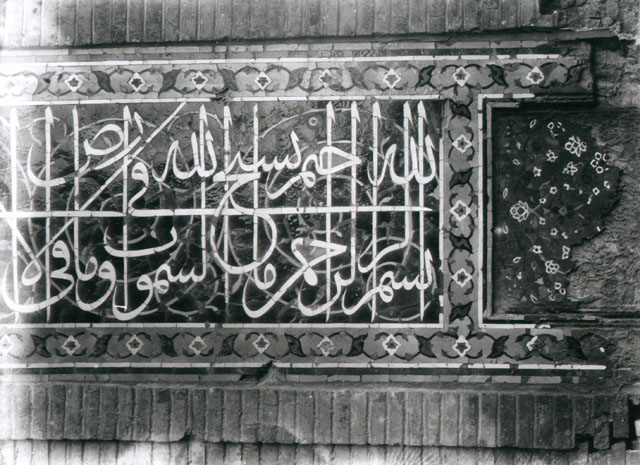 بسم الله الرحمن الرحيم يسبح لله ما في السموات وما في الارض